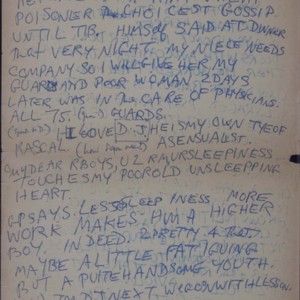 POISONER CHOICEST GOSSIP
UNTIL TIB. HIMSELF SAID AT DINNER
that VERY NIGHT. MY NIECE NEEDS
COMPANY SO I WILL GIVE HER MY
GUARD AND POOR WOMAN 2 DAYS
LATER WAS IN the CARE OF PHYSICIANS.
ALL 75. GUARDS.
I LOVED J. HE IS MY OWN TYE OF
RASCAL (he is) A SENSUALIST.
MY DEAR BOYS, U 2 R MUR SLEEPINESS
TOUCHES MY POOR OLD UNSLEPPING
HEART.
GP SAYS. LESS SLEEPINESS MORE
WORK MAKES HIM A HIGHER
BOY. INDEED. 2 PRETTY 4 THAT.
MAYBE A LITTLE FATIGUING
BUT A QUITE HANDSOME YOUTH.
NEXT. WE GO ON WITH LESSON